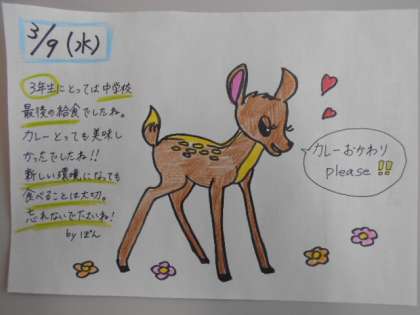 3/9(水)
3年生にとっては中学校
最後の給食でしたね。
カレーとっても美味し
かったでしたね!!
新しい環境になっても
食べることは大切。
忘れないで下さいね!
by ぱん
カレーおかわり
please!!